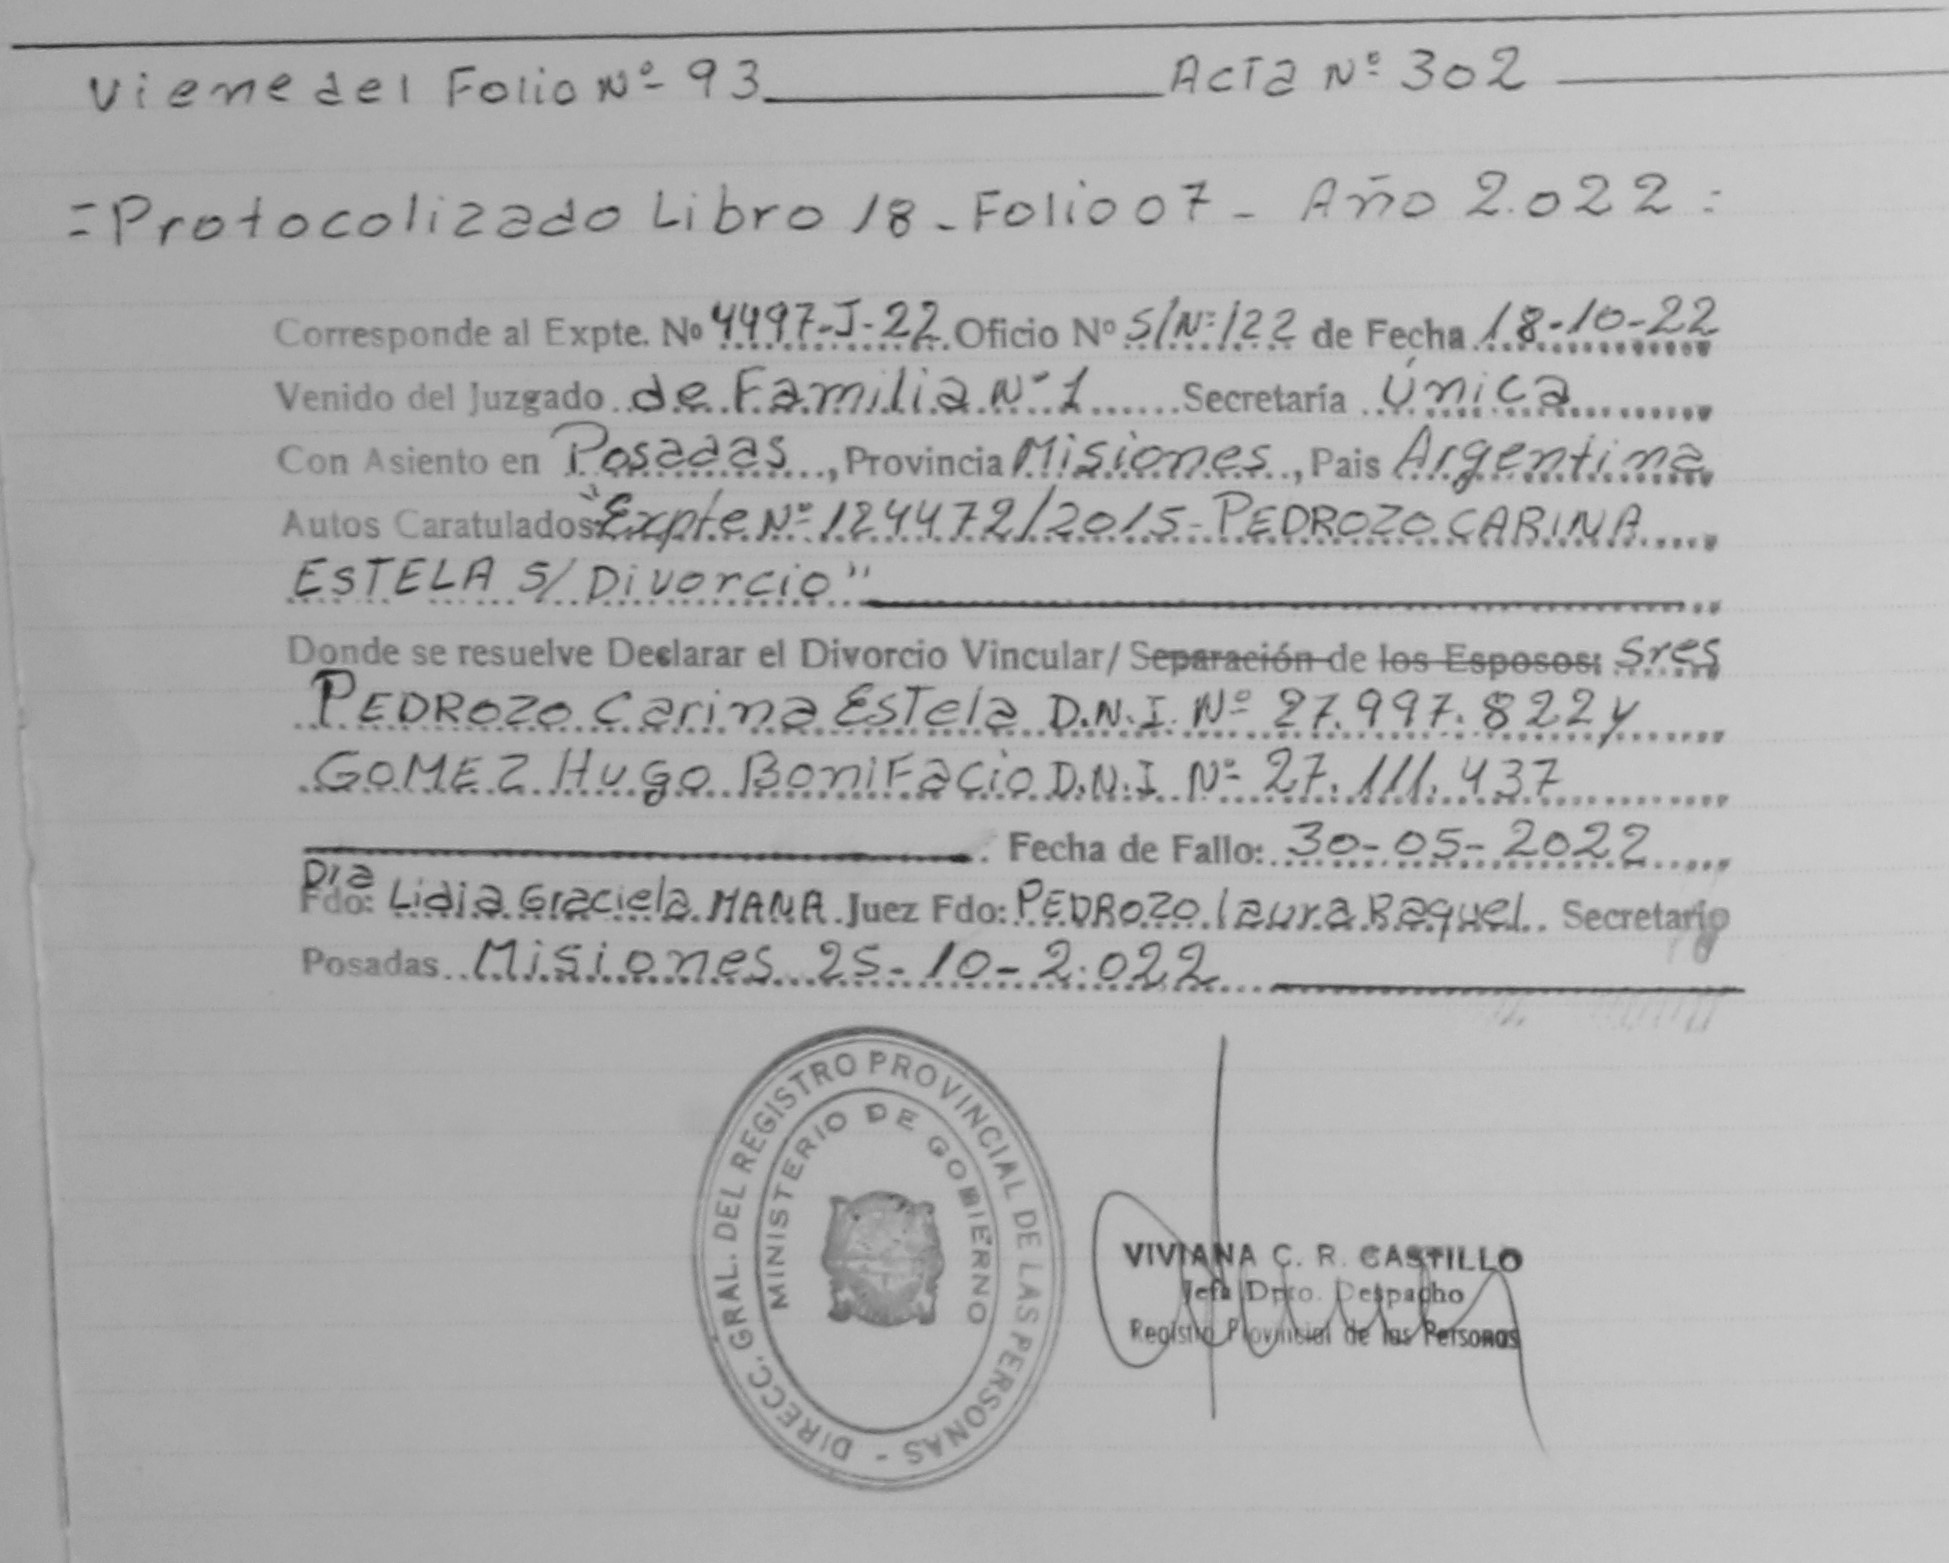 Viene del Folio Nº 93 Acta Nº 302
=Protocolizado Libro 18 - Folio 07 - Año 2.022=
Corresponde al Expte. Nº 4497-J-22 Oficio Nº S/Nº/22 de Fecha 18-10-22
Venido del Juzgado de Familia Nº 1 Secretaría Única
Con Asiento en Posadas, Provincia Misiones, Pais Argentina
Autos Caratulados: "Expte Nº 124472/2015- PEDROZO CARINA
ESTELA S/ Divorcio"
Donde se resuelve Declarar el Divorcio Vincular/ Separación de los Esposos: Sres
PEDROZO Carina Estela D.N.I. Nº 27.997.822 y
GOMEZ Hugo Bonifacio D.N.I. Nº 27.111.437
. Fecha de Fallo: 30-05-2022
Dra
Fdo: Lidia Graciela MANA Juez Fdo: PEDROZO laura Raquel. Secretario
Posadas Misiones 25-10-2.022
DIRECC. GRAL. DEL REGISTRO PROVINCIAL DE LAS PERSONAS -
MINISTERIO DE GOBIERNO
VIVIANA C. R. CASTILLO
Jefa Dpto. Despacho
Registro Provincial de las Personas